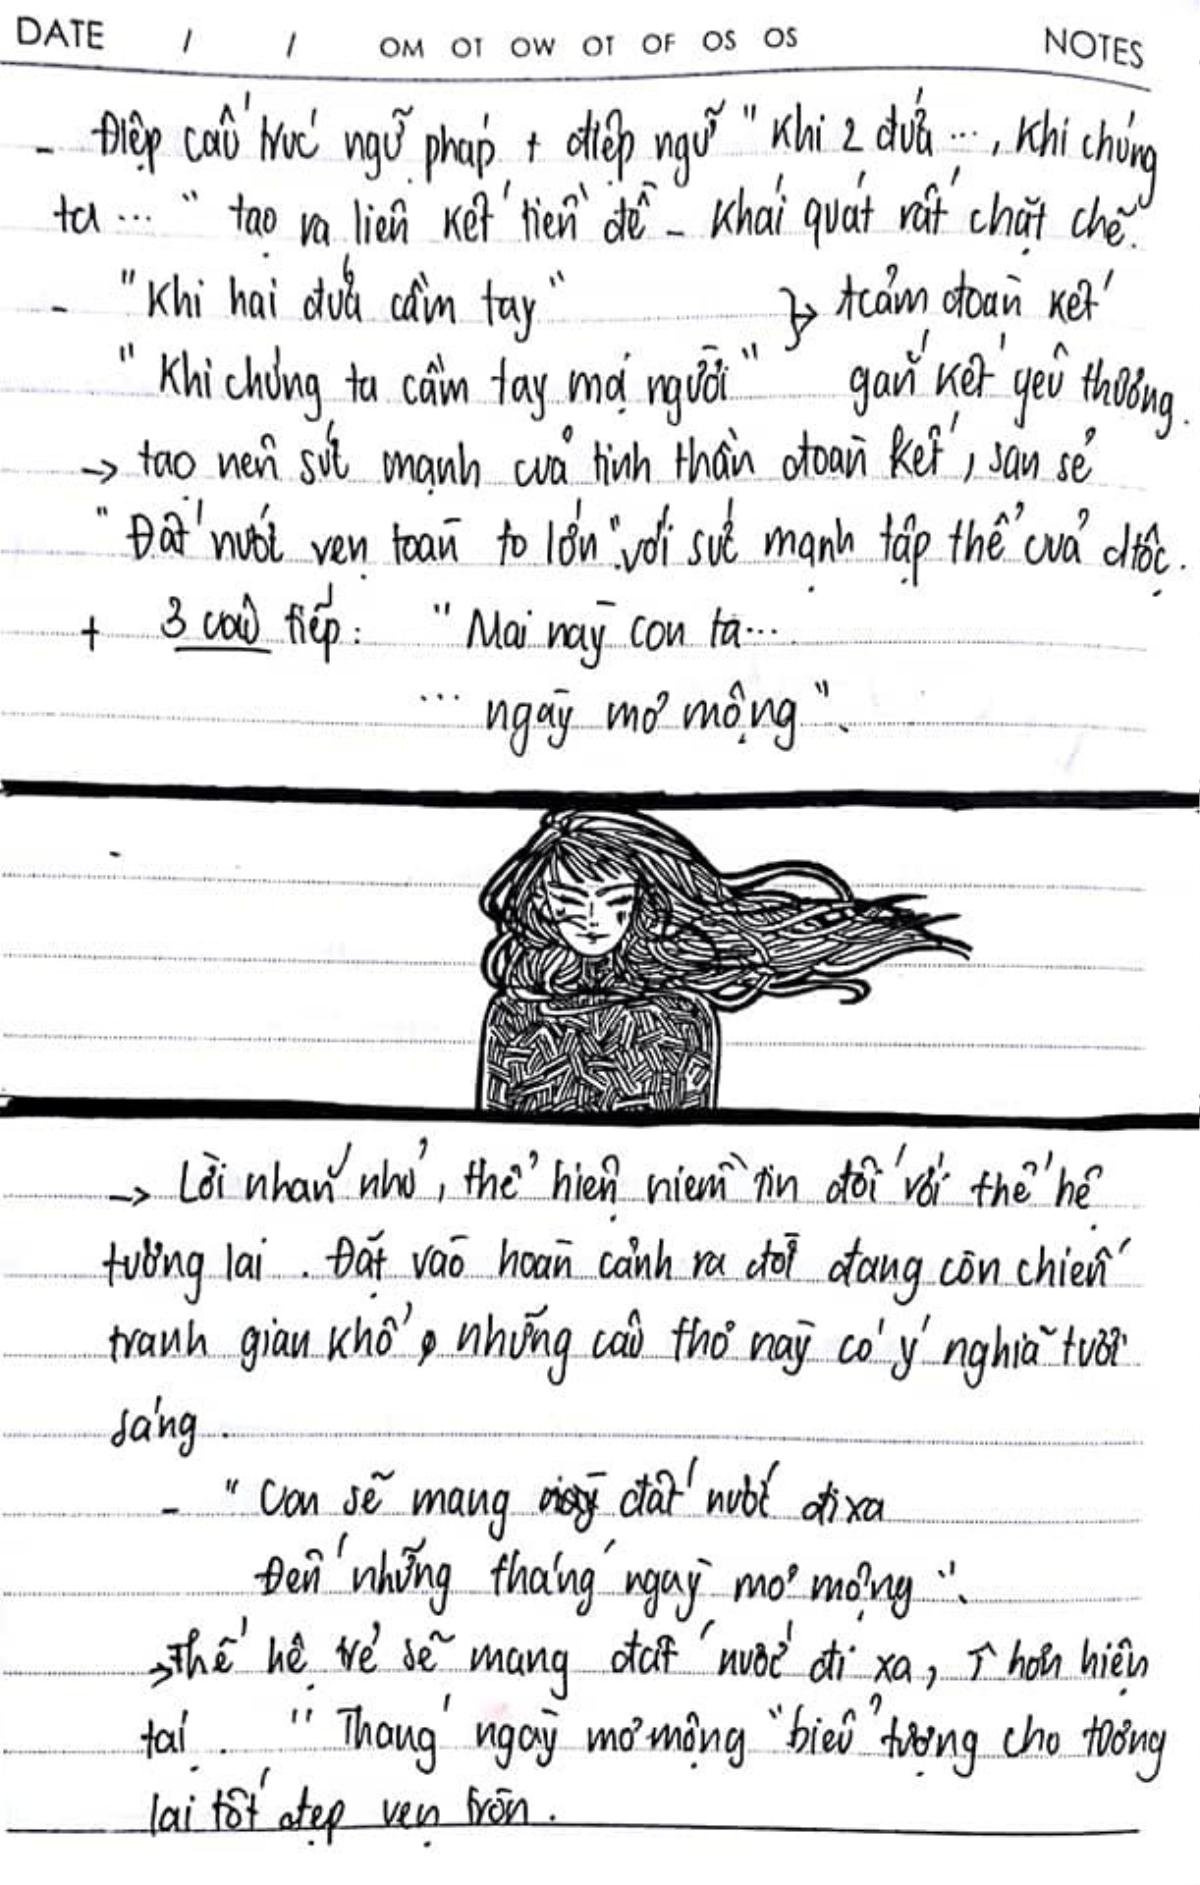 DATE / / OM OT OW OT OF OS OS NOTES
- Điệp cấu trúc ngữ pháp + điệp ngữ "Khi 2 đứa ..., Khi chúng
ta ..." tạo ra liên kết tiền đề - khái quát rất chặt chẽ.
- "Khi hai đứa cầm tay" } → tcảm đoàn kết
"Khi chúng ta cầm tay mọi người" gắn kết yêu thương.
→ tạo nên sức mạnh của tinh thần đoàn kết, san sẻ
"Đất nước vẹn toàn to lớn" với sức mạnh tập thể của dtộc.
+ 3 câu tiếp: "Mai này con ta...
... ngày mơ mộng".
→ Lời nhắn nhủ, thể hiện niềm tin đối với thế hệ
tương lai. Đặt vào hoàn cảnh ra đời đang còn chiến
tranh gian khổ, những câu thơ này có ý nghĩa tươi
sáng.
- "Con sẽ mang đất nước đi xa
Đến những tháng ngày mơ mộng".
→ Thế hệ trẻ sẽ mang đất nước đi xa, ↑ hơn hiện
tại. "Tháng ngày mơ mộng" biểu tượng cho tương
lai tốt đẹp vẹn tròn.